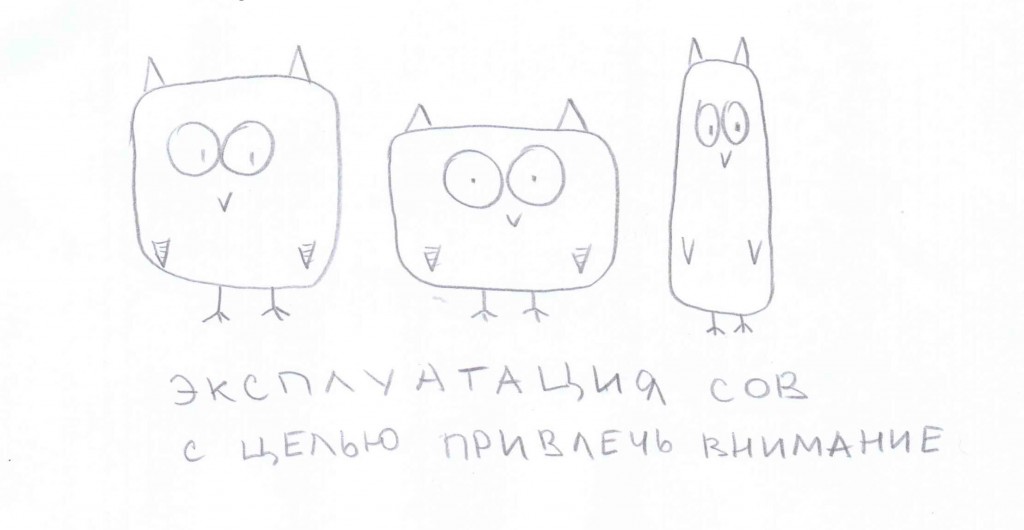 ЭКСПЛУАТАЦИЯ СОВ
С ЦЕЛЬЮ ПРИВЛЕЧЬ ВНИМАНИЕ